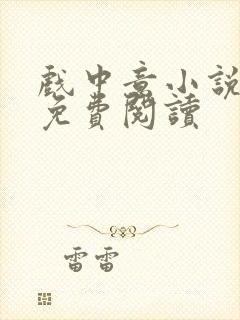 戲中意小說
免費閱讀
雷雷